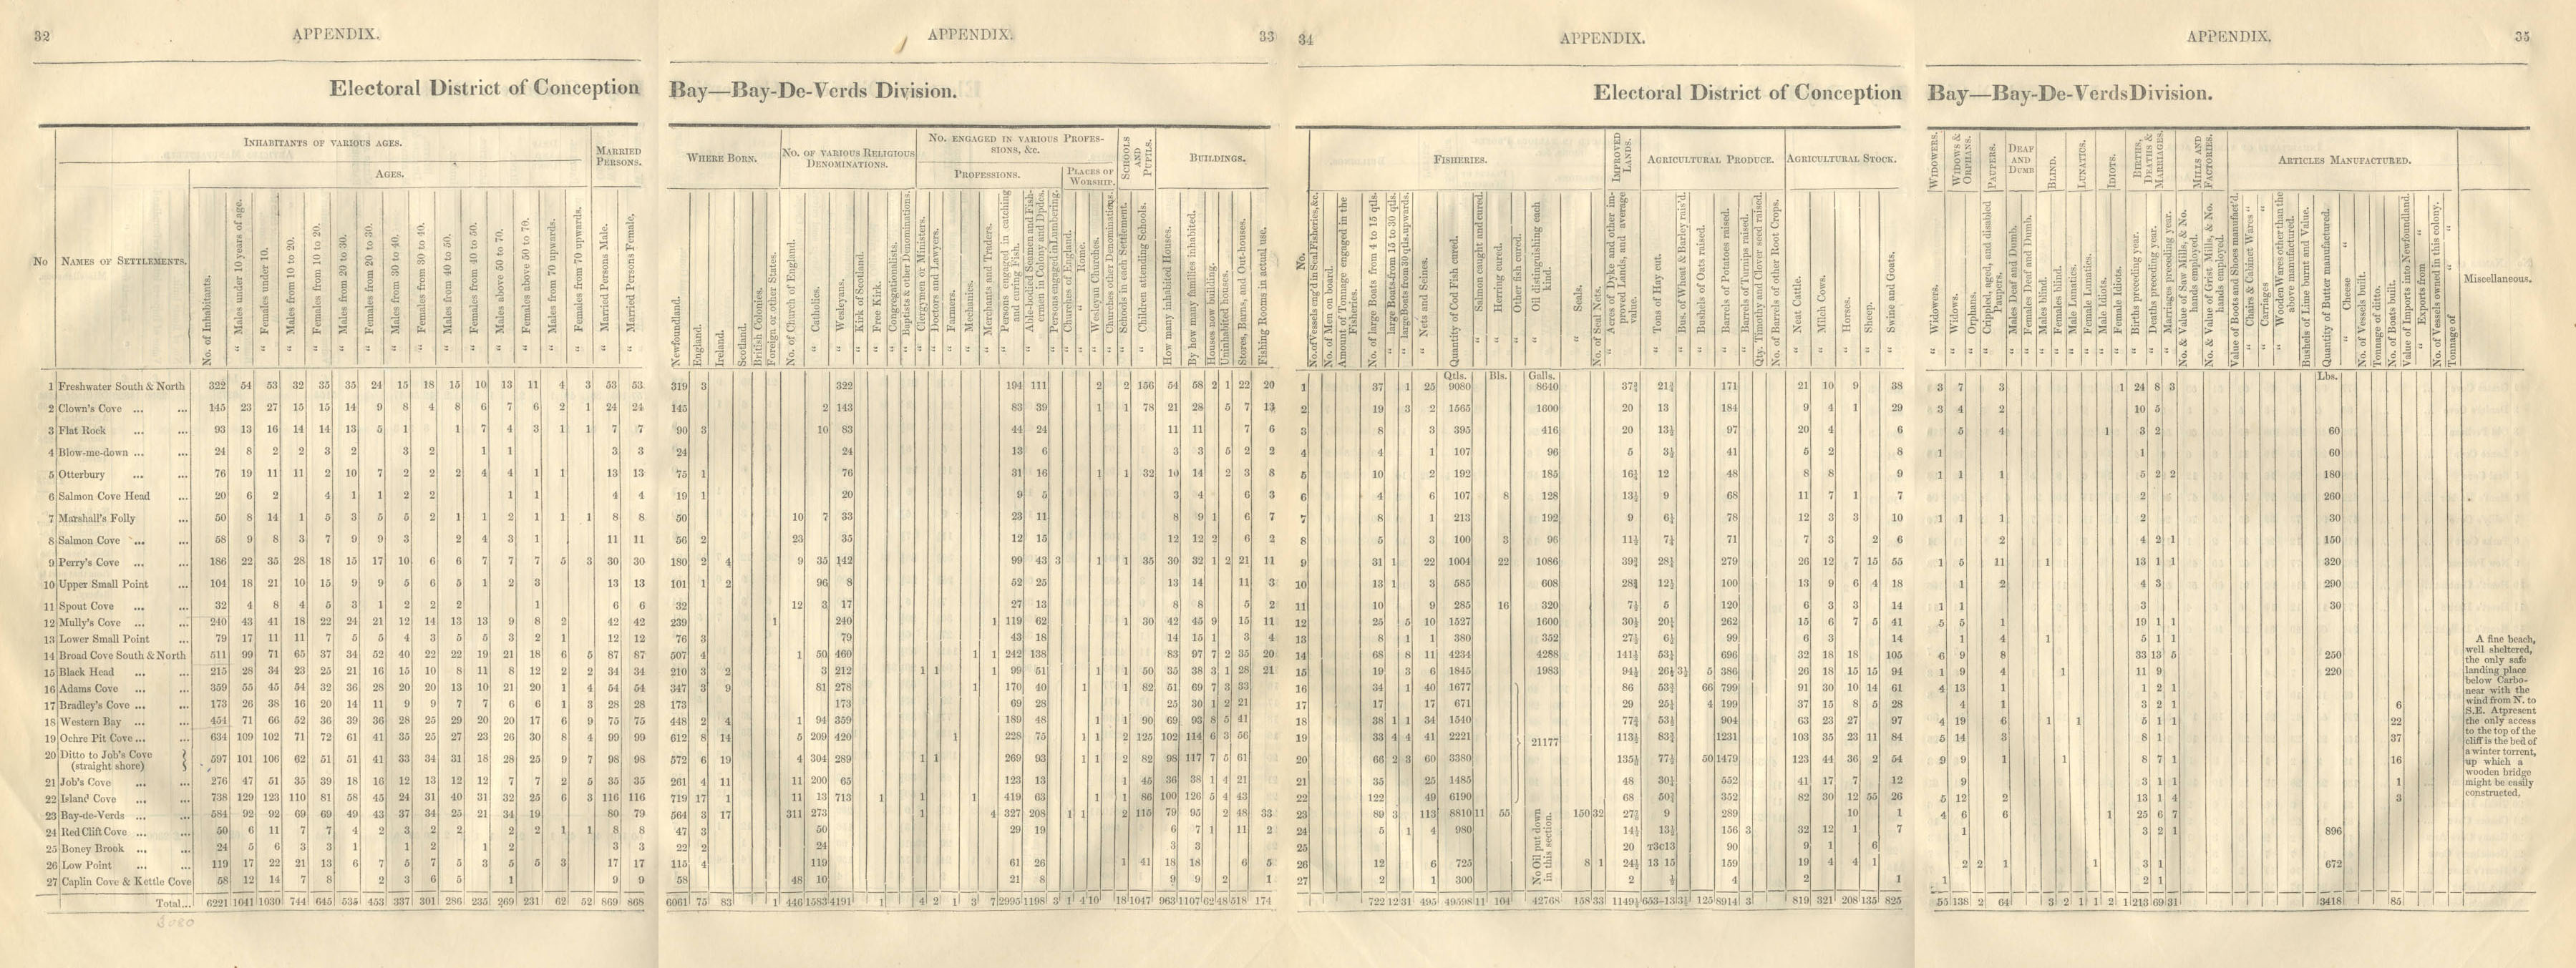 32 APPENDIX.
APPENDIX. 33
34 APPENDIX.
APPENDIX. 35
Electoral District of Conception Bay—Bay-De-Verds Division.
Electoral District of Conception Bay—Bay-De-Verds Division.
INHABITANTS OF VARIOUS AGES.
MARRIED PERSONS.
AGES.
No
NAMES OF SETTLEMENTS.
No. of Inhabitants.
" Males under 10 years of age.
" Females under 10.
" Males from 10 to 20.
" Females from 10 to 20.
" Males from 20 to 30.
" Females from 20 to 30.
" Males from 30 to 40.
" Females from 30 to 40.
" Males from 40 to 50.
" Females from 40 to 50.
" Males above 50 to 70.
" Females above 50 to 70.
" Males from 70 upwards.
" Females from 70 upwards.
" Married Persons Male.
" Married Persons Female,
1 Freshwater South & North 322 54 53 32 35 35 24 15 18 15 10 13 11 4 3 53 53
2 Clown's Cove ... ... 145 23 27 15 15 14 9 8 4 8 6 7 6 2 1 24 24
3 Flat Rock ... ... 93 13 16 14 14 13 5 1 1 7 4 3 1 1 7 7
4 Blow-me-down ... ... 24 8 2 2 3 2 3 2 1 1 3 3
5 Otterbury ... ... 76 19 11 11 2 10 7 2 2 2 4 4 1 1 13 13
6 Salmon Cove Head ... 20 6 2 4 1 1 2 2 1 1 4 4
7 Marshall's Folly ... 50 8 14 1 5 3 5 5 2 1 1 2 1 1 1 8 8
8 Salmon Cove ... ... 58 9 8 3 7 9 9 3 2 4 3 1 11 11
9 Perry's Cove ... ... 186 22 35 28 18 15 17 10 6 6 7 7 7 5 3 30 30
10 Upper Small Point ... 104 18 21 10 15 9 9 5 6 5 1 2 3 13 13
11 Spout Cove ... ... 32 4 8 4 5 3 1 2 2 2 1 6 6
12 Mully's Cove ... ... 240 43 41 18 22 24 21 12 14 13 13 9 8 2 42 42
13 Lower Small Point ... 79 17 11 11 7 5 5 4 3 5 5 3 2 1 12 12
14 Broad Cove South & North 511 99 71 65 37 34 52 40 22 22 19 21 18 6 5 87 87
15 Black Head ... ... 215 28 34 23 25 21 16 15 10 8 11 8 12 2 2 34 34
16 Adams Cove ... ... 359 55 45 54 32 36 28 20 20 13 10 21 20 1 4 54 54
17 Bradley's Cove ... ... 173 26 38 16 20 14 11 9 9 7 7 6 6 1 3 28 28
18 Western Bay ... ... 454 71 66 52 36 39 36 28 25 29 20 20 17 6 9 75 75
19 Ochre Pit Cove ... ... 634 109 102 71 72 61 41 35 25 27 23 26 30 8 4 99 99
20 Ditto to Job's Cove (straight shore) 597 101 106 62 51 51 41 33 34 31 18 28 25 9 7 98 98
21 Job's Cove ... ... 276 47 51 35 39 18 16 12 13 12 12 7 7 2 5 35 35
22 Island Cove ... ... 738 129 123 110 81 58 45 24 31 40 31 32 25 6 3 116 116
23 Bay-de-Verds ... ... 584 92 92 69 69 49 43 37 34 25 21 34 19 80 79
24 Red Clift Cove ... ... 50 6 11 7 7 4 2 3 2 2 2 2 1 1 8 8
25 Boney Brook ... ... 24 5 6 3 3 1 1 2 1 2 3 3
26 Low Point ... ... 119 17 22 21 13 6 7 5 7 5 3 5 5 3 17 17
27 Caplin Cove & Kettle Cove 58 12 14 7 8 2 3 6 5 1 9 9
Total... 6221 1041 1030 744 645 535 453 337 301 286 235 269 231 62 52 869 868
WHERE BORN.
No. OF VARIOUS RELIGIOUS DENOMINATIONS.
No. ENGAGED IN VARIOUS PROFESSIONS, &c.
PROFESSIONS.
PLACES OF WORSHIP.
SCHOOLS AND PUPILS.
BUILDINGS.
Newfoundland.
England.
Ireland.
Scotland.
British Colonies.
Foreign or other States.
No. of Church of England.
" Catholics.
" Wesleyans.
" Kirk of Scotland.
" Free Kirk.
" Congregationalists.
" Baptists & other Denominations.
" Clergymen or Ministers.
" Doctors and Lawyers.
" Farmers.
" Mechanics.
" Merchants and Traders.
Persons engaged in catching and curing Fish.
Able-bodied Seamen and Fishermen in Colony and Dpdcs.
Persons engaged in Lumbering.
" Churches of England.
" " Rome.
" Wesleyan Churches.
" Churches other Denominations.
Schools in each Settlement.
Children attending Schools.
How many inhabited Houses.
By how many families inhabited.
Houses now building.
Uninhabited houses.
Stores, Barns, and Out-houses.
Fishing Rooms in actual use.
319 3 322 194 111 2 2 156 54 58 2 1 22 20
145 2 143 83 39 1 1 78 21 28 5 7 13
90 3 10 83 44 24 11 11 7 6
24 24 13 6 3 3 5 2 2
75 1 76 31 16 1 1 32 10 14 2 3 8
19 1 20 9 5 3 4 6 3
50 10 7 33 23 11 8 9 1 6 7
56 2 23 35 12 15 12 12 2 6 2
180 2 4 9 35 142 99 43 3 1 1 35 30 32 1 2 21 11
101 1 2 96 8 52 25 13 14 11 3
32 12 3 17 27 13 8 8 5 2
239 1 240 1 119 62 1 30 42 45 9 15 11
76 3 79 43 18 14 15 1 3 4
507 4 1 50 460 1 1 242 138 83 97 7 2 35 20
210 3 2 3 212 1 1 1 99 51 1 1 50 35 38 3 1 28 21
347 3 9 81 278 1 170 40 1 1 82 51 69 7 3 33
173 173 69 28 25 30 1 2 21
448 2 4 1 94 359 189 48 1 1 90 69 93 8 5 41
612 8 14 5 209 420 1 228 75 1 1 2 125 102 114 6 3 56
572 6 19 4 304 289 1 1 269 93 1 1 2 82 98 117 7 5 61
261 4 11 11 200 65 123 13 1 45 36 38 1 4 21
719 17 1 11 13 713 1 1 1 419 63 1 1 86 100 126 5 4 43
564 3 17 311 273 1 4 327 208 1 1 2 115 79 95 2 48 33
47 3 50 29 19 6 7 1 11 2
22 2 24 3 3
115 4 119 61 26 1 41 18 18 6 5
58 48 10 21 8 9 9 2 1
6061 75 83 1 446 1583 4191 1 4 2 1 3 7 2995 1198 3 1 4 10 18 1047 963 1107 62 48 518 174
FISHERIES.
IMPROVED LANDS.
AGRICULTURAL PRODUCE.
AGRICULTURAL STOCK.
No.
No. of Vessels eng'd in Seal Fisheries, &c.
No. of Men on board.
Amount of Tonnage engaged in the Fisheries.
No. of large Boats from 4 to 15 qtls.
" large Boats from 15 to 30 qtls.
" large Boats from 30 qtls. upwards.
" Nets and Seines.
Quantity of Cod Fish cured.
" Salmon caught and cured.
" Herring cured.
" Other fish cured.
" Oil distinguishing each kind.
" Seals.
No. of Seal Nets.
Acres of Dyke and other improved Lands, and average value.
Tons of Hay cut.
Bus. of Wheat & Barley rais'd.
Bushels of Oats raised.
Barrels of Potatoes raised.
Barrels of Turnips raised.
Qty. Timothy and Clover seed raised.
No. of Barrels of other Root Crops.
" Neat Cattle.
" Milch Cows.
" Horses.
" Sheep.
" Swine and Goats.
Qtls. Bls. Galls.
1 37 1 25 9080 8640 37¾ 21¾ 171 21 10 9 38
2 19 3 2 1565 1600 20 13 184 9 4 1 29
3 8 3 395 416 20 13½ 97 20 4 6
4 4 1 107 96 5 3½ 41 5 2 8
5 10 2 192 185 16¾ 12 48 8 8 9
6 4 6 107 8 128 13½ 9 68 11 7 1 7
7 8 1 213 192 9 6¼ 78 12 3 3 10
8 5 3 100 3 96 11½ 7¼ 71 7 3 2 6
9 31 1 22 1004 22 1086 39¾ 28¼ 279 26 12 7 15 55
10 13 1 3 585 608 28¾ 12½ 100 13 9 6 4 18
11 10 9 285 16 320 7½ 5 120 6 3 3 14
12 25 5 10 1527 1600 30½ 20¼ 262 15 6 7 5 41
13 8 1 1 380 352 27½ 6½ 99 6 3 14
14 68 8 11 4234 4288 141¾ 53¼ 696 32 18 18 105
15 19 3 6 1845 1983 94½ 26¼ 3½ 5 386 26 18 15 15 94
16 34 1 40 1677 86 53¾ 66 799 91 30 10 14 61
17 17 17 671 29 25¼ 4 199 37 15 8 5 28
18 38 1 1 34 1540 77¾ 53½ 904 63 23 27 97
19 33 4 4 41 2221 113½ 83¾ 1231 103 35 23 11 84
21177
20 66 2 3 60 3380 135½ 77½ 50 1479 123 44 36 2 54
21 35 25 1485 48 30¼ 552 41 17 7 12
22 122 49 6190 68 50¾ 352 82 30 12 55 26
23 89 3 113 8810 11 55 150 32 27¾ 9 289 10 1
24 5 1 4 980 14½ 13½ 156 3 32 12 1 7
25 20 T3c13 90 9 1 6
26 12 6 725 8 1 24½ 13 15 159 19 4 4 1
27 2 1 300 2 ½ 4 2 1
No Oil put down in this section.
722 12 31 495 49598 11 104 42768 158 33 1149½ 653-13 3½ 125 8914 3 819 321 208 135 825
WIDOWERS.
WIDOWS & ORPHANS.
PAUPERS.
DEAF AND DUMB
BLIND.
LUNATICS.
IDIOTS.
BIRTHS, DEATHS & MARRIAGES.
MILLS AND FACTORIES.
ARTICLES MANUFACTURED.
" Widowers.
" Widows.
" Orphans.
" Crippled, aged, and disabled Paupers.
" Males Deaf and Dumb.
" Females Deaf and Dumb.
" Males blind.
" Females blind.
" Male Lunatics.
" Female Lunatics.
" Male Idiots.
" Female Idiots.
" Births preceding year.
" Deaths preceding year.
" Marriages preceding year.
No. & Value of Saw Mills, & No. hands employed.
No. & Value of Grist Mills, & No. hands employed.
Value of Boots and Shoes manufact'd.
" Chairs & Cabinet Wares "
" Carriages "
" Wooden Wares other than the above manufactured.
Bushels of Lime burnt and Value.
Quantity of Butter manufactured.
" Cheese "
No. of Vessels built.
Tonnage of ditto.
No. of Boats built.
Value of Imports into Newfoundland.
" Exports from "
No. of Vessels owned in this colony.
Tonnage of "
Miscellaneous.
Lbs.
3 7 3 1 24 8 3
3 4 2 10 5
5 4 1 3 2 60
1 1 60
1 1 1 5 2 2 180
2 260
1 1 1 2 30
2 4 2 1 150
1 5 11 1 13 1 1 320
1 2 4 3 290
1 1 3 30
5 5 1 19 1 1
1 4 1 5 1 1
6 9 8 33 13 5 250
1 9 4 1 11 9 220
4 13 1 1 2 1
4 1 3 2 1 6
4 19 6 1 1 5 1 1 22
5 14 3 8 1 37
9 9 1 1 8 7 1 16
9 3 1 1 1
5 12 2 13 1 4 3
4 6 6 1 25 6 7
1 3 2 1 896
2 2 1 1 3 1 672
1 2 1
55 138 2 64 3 2 1 1 2 1 213 69 31 3418 85
A fine beach,
well sheltered,
the only safe
landing place
below Carbo-
near with the
wind from N. to
S.E. At present
the only access
to the top of the
cliff is the bed of
a winter torrent,
up which a
wooden bridge
might be easily
constructed.